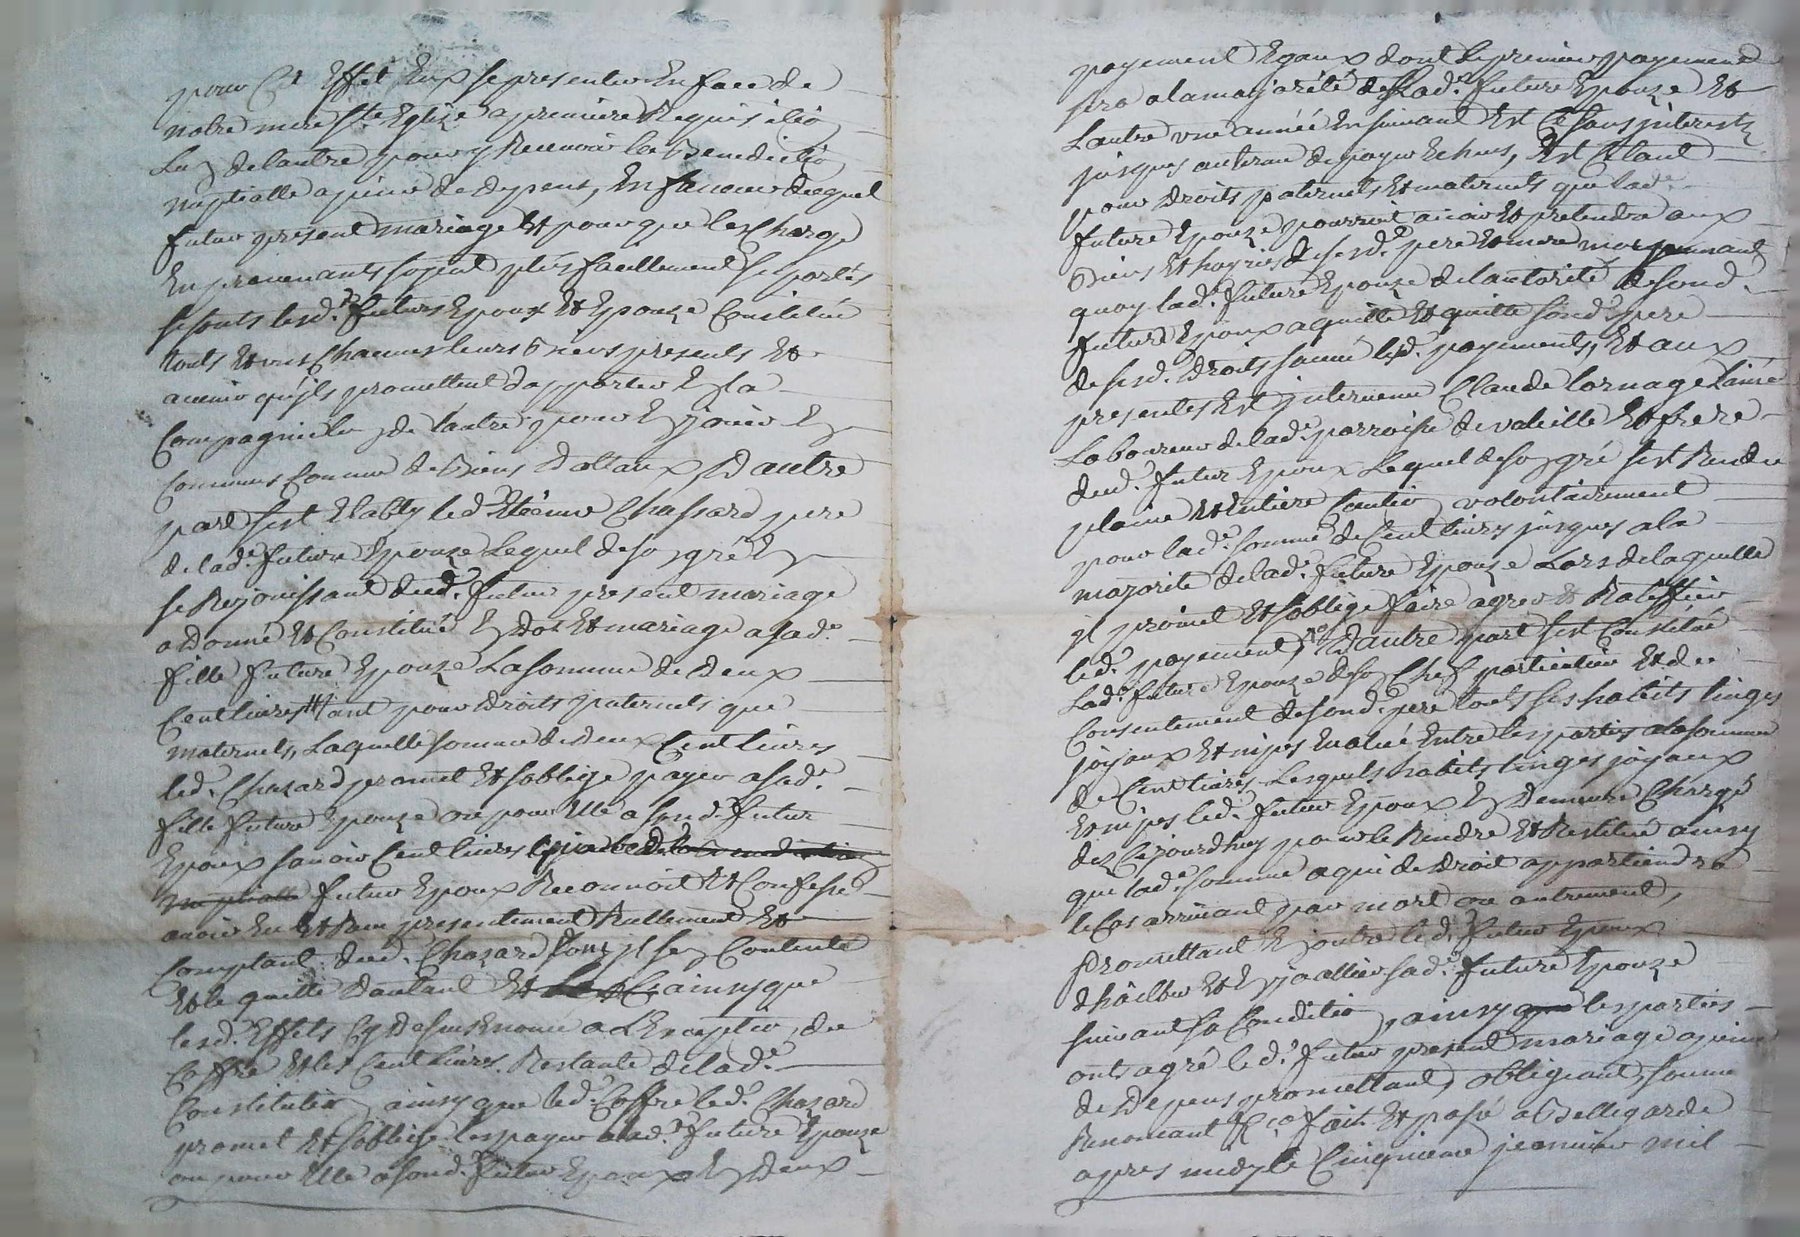 pour Cet Effet Eux se presenter En face de
notre mere Ste Eglize a premiere Requisitio
Lun de lautre pour y Recevoir la Benedictio
nuptialle a peine de depens, En faveur duquel
futur present mariage Et pour que les Charge
En provenants soyent plus facillement suportés
se sonts lesd. futurs Epoux Et Epouze Constitué
touts Et uns Chacuns leurs biens presents Et
avenir qu'ils promettent d'apporter En la
Compagnie lun de lautre pour En jouir En
Communs comme de Biens dottaux, D'autre
part s'est Etably led. Etienne Chassard pere
de lade. future Epouze Lequel de son gré En
se Rejouissant dud. futur present mariage
a donné Et Constitué En dot Et mariage a sade.
fille future Epouze La somme de deux
Cent livres tant pour droits paternels que
maternels, Laquelle somme de deux Cent livres
led. Chazard promet Et s'oblige payer a sade.
fille future Epouze ou pour Elle a sond. futur
Epoux savoir Cent livres
futur Epoux Reconnoit Et Confesse
avoir Eu Et Receu presentement Reellement Et
Comptant dud. Chazard dont il se Contente
Et le quitte d'autant Et ainsy que
lesd. Effets Cy dessus Enoncé a L'Exceptio du
Coffre Et les Cent livres Restante de lade.
Constitutio, ainsy que led. Coffre led. Chazard
promet Et s'oblige les payer a lade. future Epouze
ou pour Elle a sond. futur Epoux En deux
payement Egaux dont le premier payement
sera a la majorité de Lade. future Epouze Et
Lautre une année En suivant Et Ce sans interests
jusques au terme de payer Echus, Et Ce tant
pour droits paternels Et maternels que lade.
future Epouze pourroit avoir Et pretendre aux
biens Et hoyries de sesd. pere Et mere moyennant
quoy lade. future Epouze de lautorité de sond.
futur Epoux a quitté Et quitte sond. pere
de sesd. droits sauve lesd. payements, Et aux
presentes Est intervenu Claude Cornage lainé
Laboureur de lade. parroisse de valeille Et frere
dud. futur Epoux Lequel de son gré s'est Rendu
plaine Et Entiere Cautio volontairement
pour lade. somme de Cent livres jusques a la
majorité de lade. future Epouze Lors de laquelle
il promet Et s'oblige faire agreer Et Ratiffier
led. payement, D'autre part s'est Constitué
Lade. future Epouze de son Chef particulier Et du
Consentement de sond. pere touts ses habits linges
joyaux Et nipes Evalué Entre les parties a la somme
de Cent livres Lesquels habits linges joyaux
Et nipes led. futur Epoux En Demeure Chargé
dez Cejourdhuy pour le Rendre Et Restitué ainsy
que lade. somme a qui de Droit appartiendra
le Cas arrivant par mort ou autrement,
Promettant En outre led. futur Epoux
d'habiller Et Enjoaller sade. future Epouze
suivant sa Conditio, ainsy les parties
onts agréé led. futur present mariage a peine
de Depens promettant, obligeant, soumet
Renoncant &ca fait Et passé a Bellegarde
apres midy le Cinquieme janvier mil